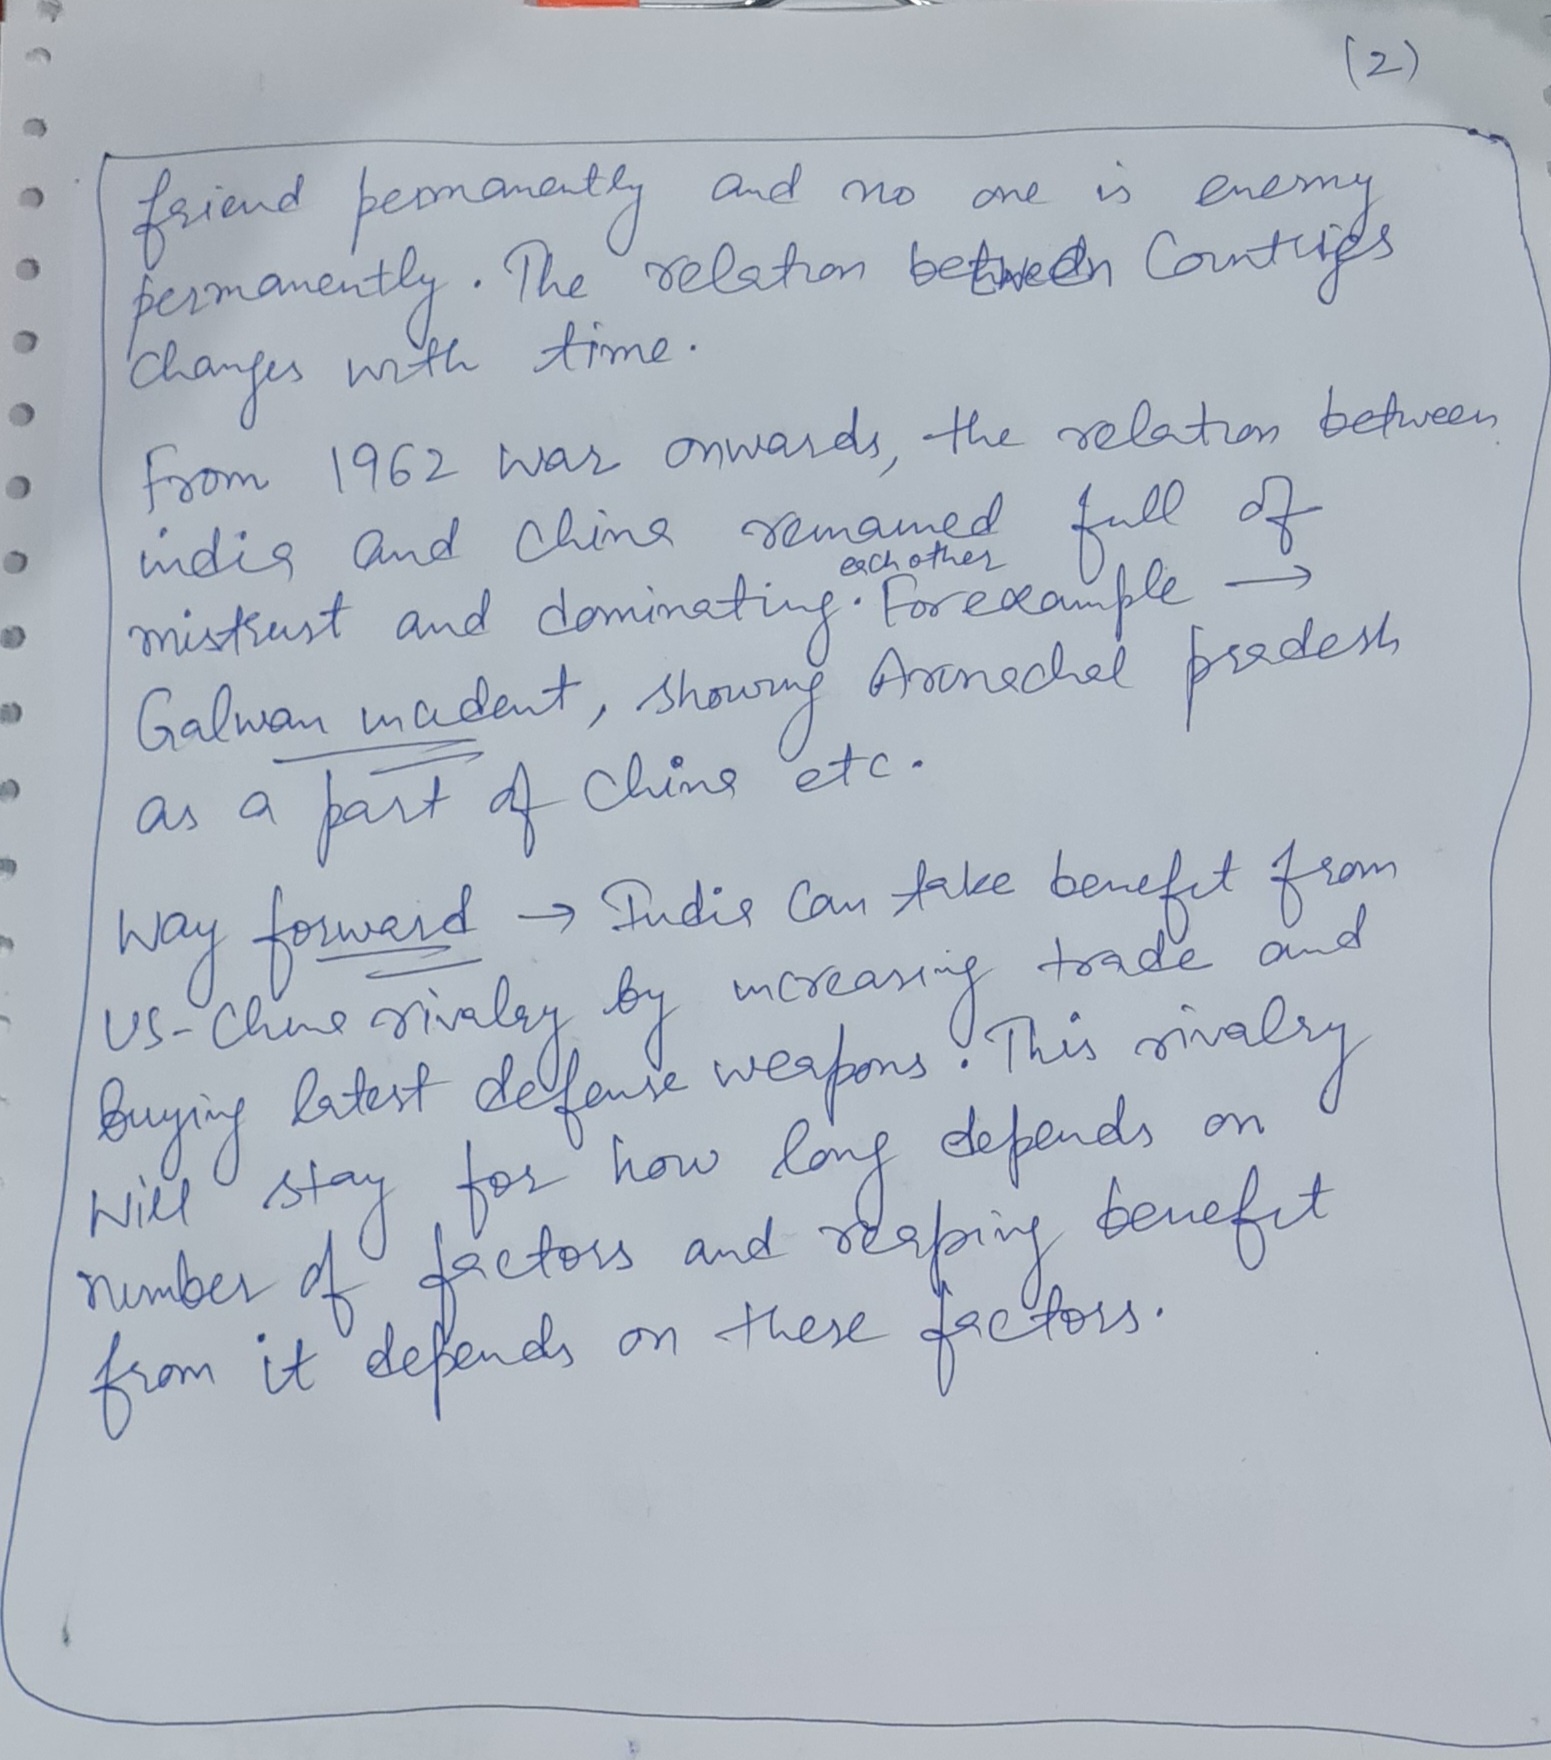 (2)
friend permanently and no one is enemy
permanently. The relation between Countries
changes with time.
From 1962 war onwards, the relation between
india and China remained full of
each other
mistrust and dominating. For example →
Galwan incident, showing Arunachal pradesh
as a part of China etc.
Way forward → India Can take benefit from
US-China rivalry by increasing trade and
buying latest defense weapons. This rivalry
Will stay for how long depends on
number of factors and reaping benefit
from it depends on these factors.